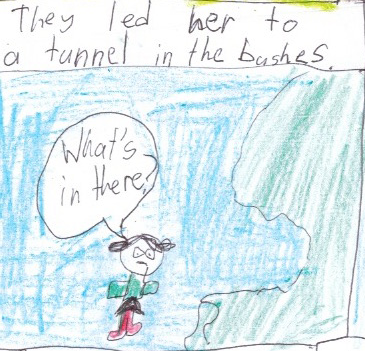 They led her to
a tunnel in the bushes.
What's
in there?